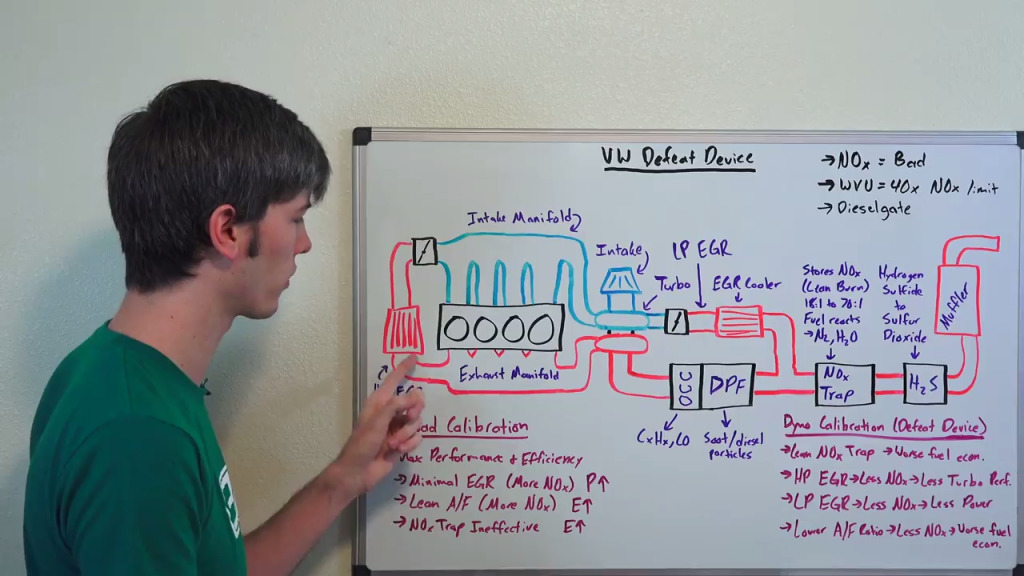 VW Defeat Device
→ NOx = Bad
→ WVU = 40x NOx limit
→ Dieselgate
Intake Manifold
Intake
Turbo
LP EGR
EGR Cooler
Stores NOx
(Lean Burn)
18:1 to 70:1
Fuel reacts
→ N2, H2O
Hydrogen
Sulfide
to
Sulfur
Dioxide
Muffler
Exhaust Manifold
DPF
NOx
Trap
H2S
CxHx, CO
Soot/diesel
particles
Calibration
Performance & Efficiency
→ Minimal EGR (More NOx) P↑
→ Lean A/F (More NOx) E↑
→ NOx Trap Ineffective E↑
Dyno Calibration (Defeat Device)
→ Lean NOx Trap → Worse fuel econ.
→ HP EGR → Less NOx → Less Turbo Perf.
→ LP EGR → Less NOx → Less Power
→ Lower A/F Ratio → Less NOx → Worse fuel
econ.